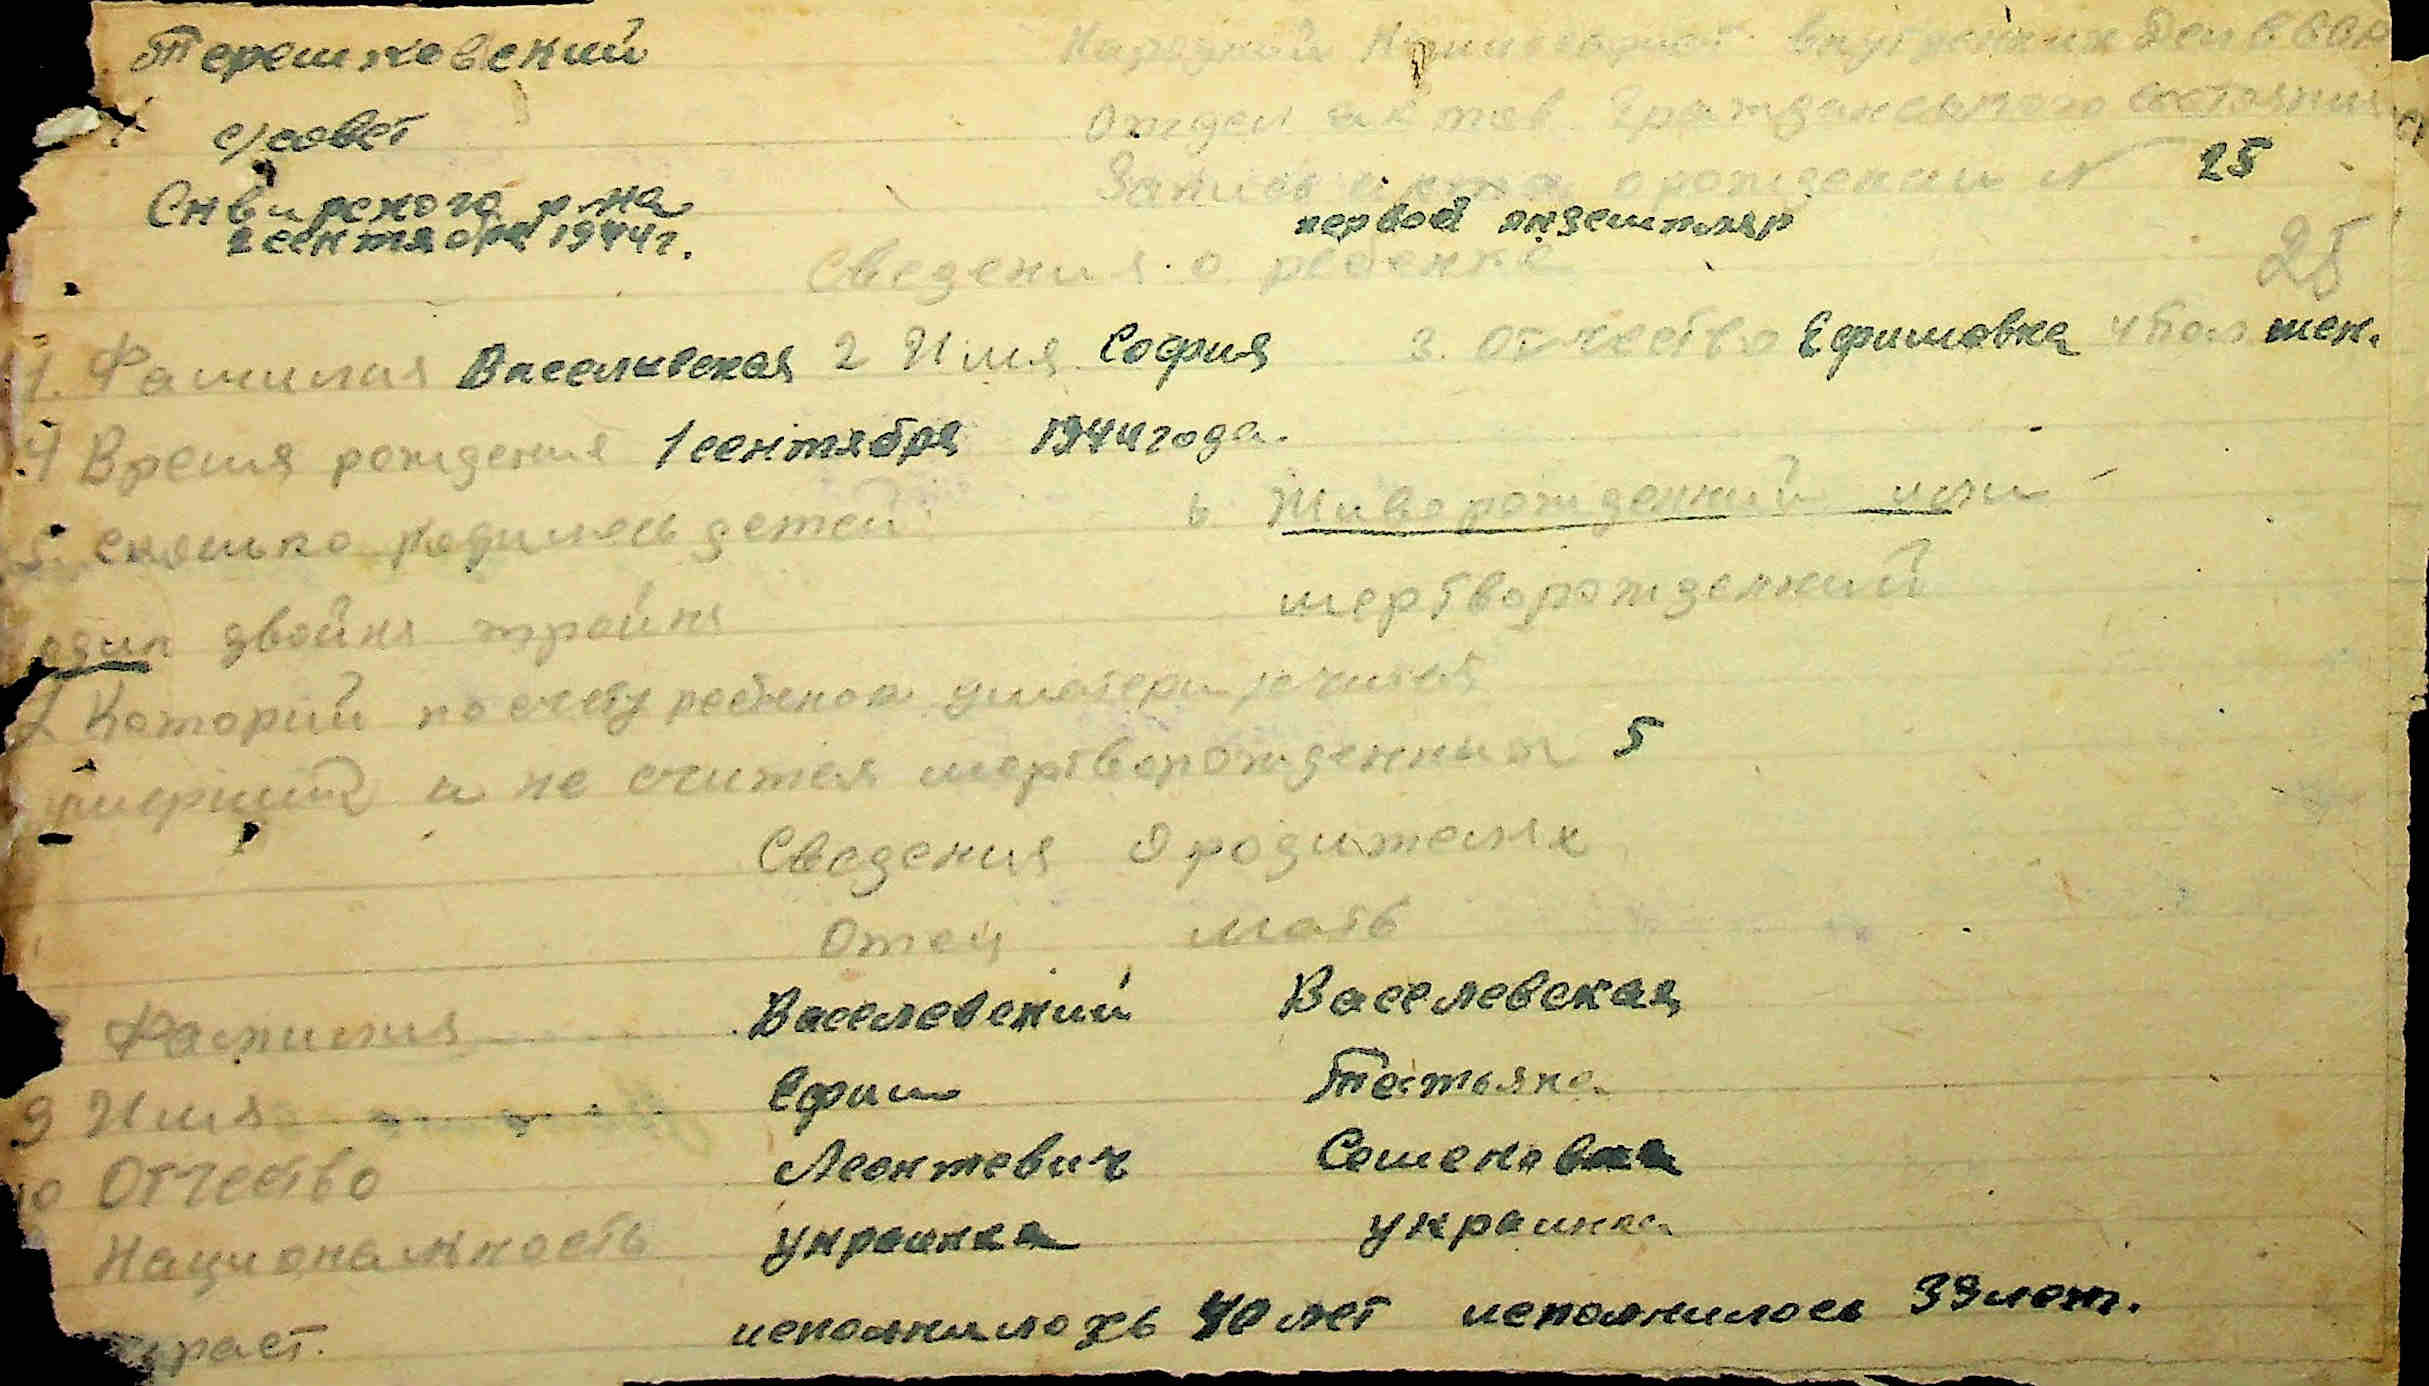 Терешковский
с/совет
Сквирского р-на
2 сентября 1944 г.
Народный Комиссариат внутренних Дел СССР
Отдел актов Гражданского состояния
Запись акта о рождении N 25
первой экземпляр
25
Сведения о ребенке
1. Фамилия Васеливская 2 Имя София 3. Отчество Ефимовна 4 Пол жен.
4 Время рождения 1 сентября 1944 года.
5. сколько родилось детей 6 Живорожденний или
один двойня тройня мертворожденний
7 Которий по счету ребенок у матери считая
умерших и не считая мертворожденных 5
Сведения о родителях
Отец мать
Фамилия Васелевский Васелевская
9 Имя Ефим Татьяна
10 Отчество Леонтевич Семеновна
Национальность украинец украинка
зраст. исполнилось 40 лет исполнилось 39 лет.